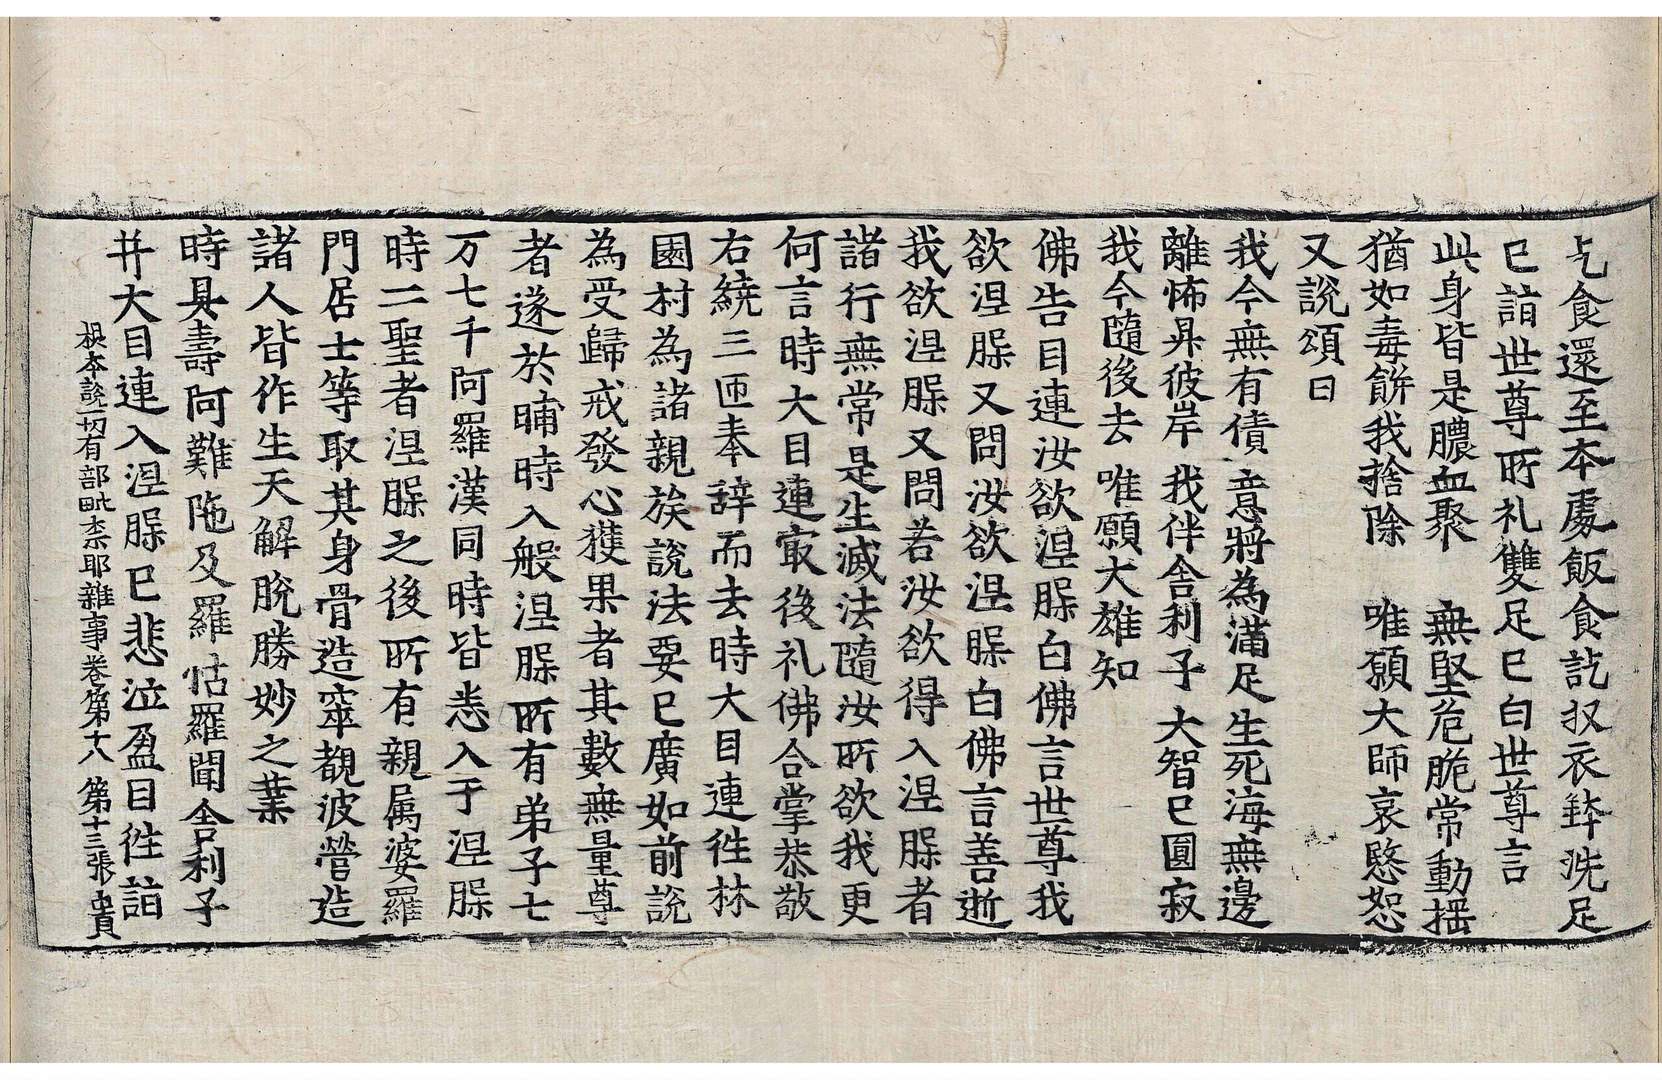 乞食還至本處飯食訖収衣鉢洗足
已詣世尊所礼雙足已白世尊言
此身皆是膿血聚 無堅危脆常動揺
猶如毒餅我捨除 唯願大師哀愍恕
又說頌曰
我今無有債 意將為滿足 生死海無邊
離怖昇彼岸 我伴舍利子 大智已圓寂
我今隨後去 唯願大雄知
佛告目連汝欲涅槃白佛言世尊我
欲涅槃又問汝欲涅槃白佛言善逝
我欲涅槃又問若汝欲得入涅槃者
諸行無常是生滅法隨汝所欲我更
何言時大目連冣後礼佛合掌恭敬
右繞三匝奉辞而去時大目連徃林
園村為諸親族說法要已廣如前說
為受歸戒發心獲果者其數無量尊
者遂於晡時入般涅槃所有弟子七
万七千阿羅漢同時皆悉入于涅槃
時二聖者涅槃之後所有親属婆羅
門居士等取其身骨造窣覩波營造
諸人皆作生天解脫勝妙之業
時具壽阿難陁及羅怙羅聞舍利子
并大目連入涅槃已悲泣盈目徃詣
根本說一切有部毗柰耶雜事卷第十八 第十三張